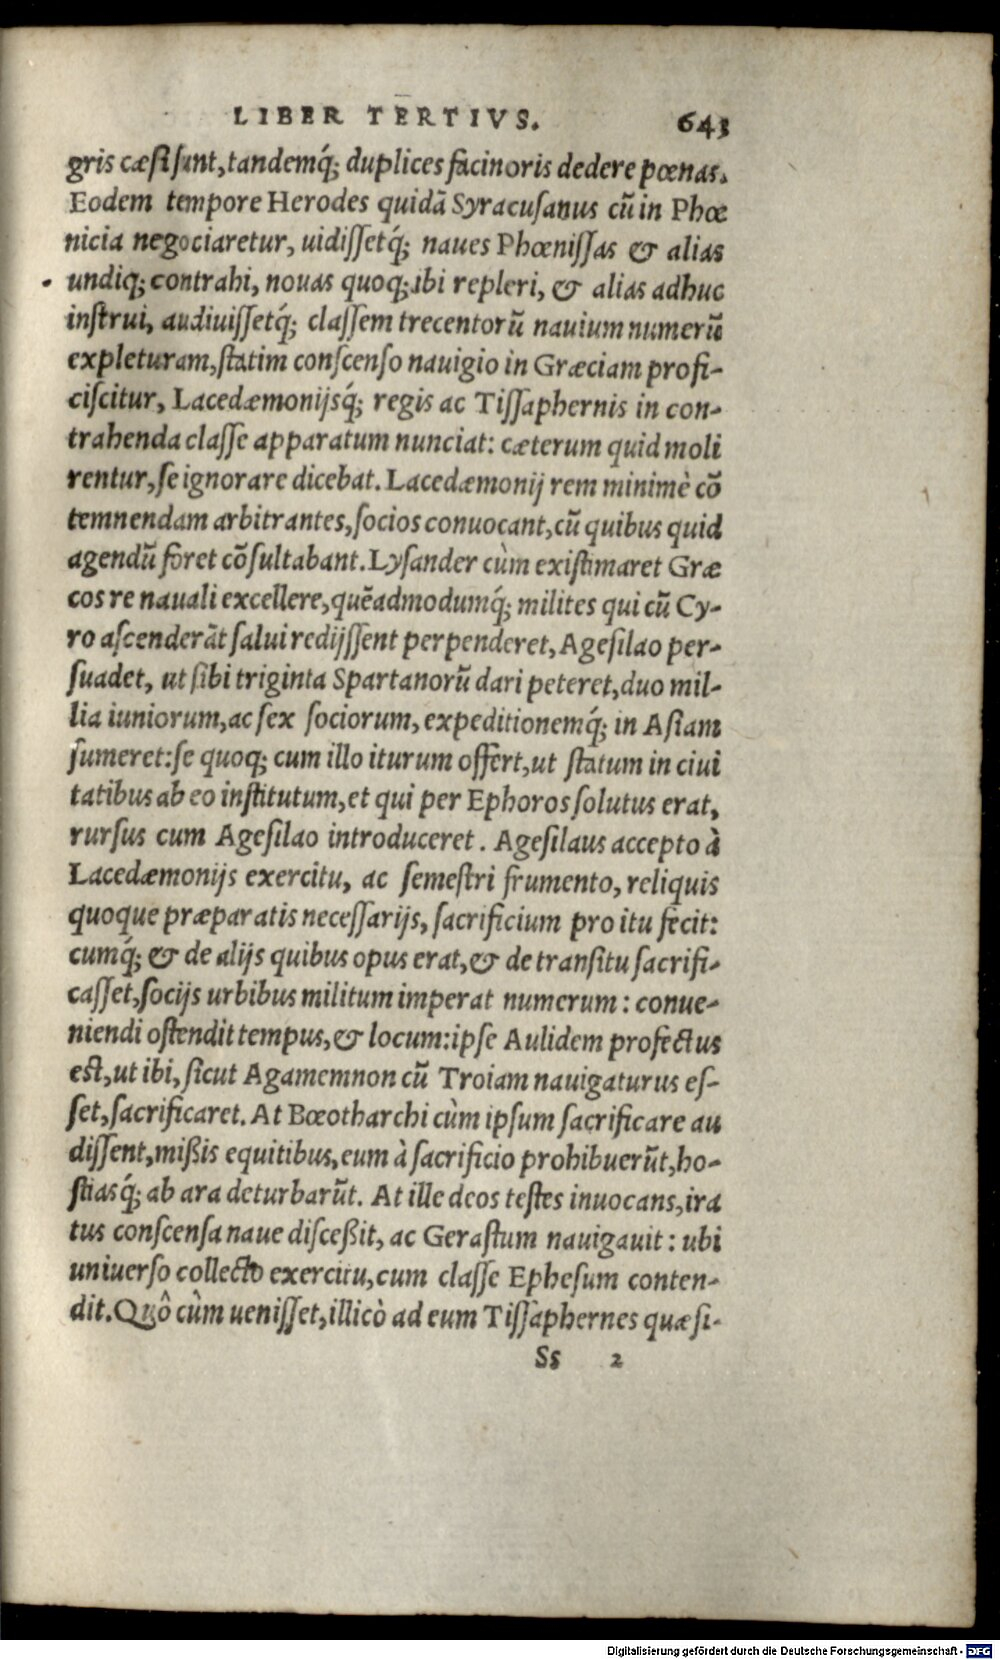 LIBER TERTIVS. 643
gris cæsi sunt, tandemq́; duplices facinoris dedere pœnas.
Eodem tempore Herodes quidā Syracusanus cū in Phœ
nicia negociaretur, uidissetq́; naues Phœnissas & alias
undiq; contrahi, nouas quoq; ibi repleri, & alias adhuc
instrui, audiuissetq́; classem trecentorū nauium numerū
expleturam, statim conscenso nauigio in Græciam profi-
ciscitur, Lacedæmonijsq́; regis ac Tissaphernis in con-
trahenda classe apparatum nunciat: cæterum quid moli
rentur, se ignorare dicebat. Lacedæmonij rem minimè cō
temnendam arbitrantes, socios conuocant, cū quibus quid
agendū foret cōsultabant. Lysander cùm existimaret Græ
cos re nauali excellere, quēadmodumq́; milites qui cū Cy-
ro ascenderāt salui redijssent perpenderet, Agesilao per-
suadet, ut sibi triginta Spartanorū dari peteret, duo mil-
lia iuniorum, ac sex sociorum, expeditionemq́; in Asiam
sumeret: se quoq; cum illo iturum offert, ut statum in ciui
tatibus ab eo institutum, et qui per Ephoros solutus erat,
rursus cum Agesilao introduceret. Agesilaus accepto à
Lacedæmonijs exercitu, ac semestri frumento, reliquis
quoque præparatis necessarijs, sacrificium pro itu fecit:
cumq́; & de alijs quibus opus erat, & de transitu sacrifi-
casset, socijs urbibus militum imperat numerum: conue-
niendi ostendit tempus, & locum: ipse Aulidem profectus
est, ut ibi, sicut Agamemnon cū Troiam nauigaturus es-
set, sacrificaret. At Bœotharchi cùm ipsum sacrificare au
dissent, mißis equitibus, eum à sacrificio prohibuerūt, ho-
stiasq́; ab ara deturbarūt. At ille deos testes inuocans, ira
tus conscensa naue disceßit, ac Gerastum nauigauit: ubi
uniuerso collecto exercitu, cum classe Ephesum conten-
dit. Quô cùm uenisset, illicò ad eum Tissaphernes quæsi-
Ss 2
Digitalisierung gefördert durch die Deutsche Forschungsgemeinschaft - DFG